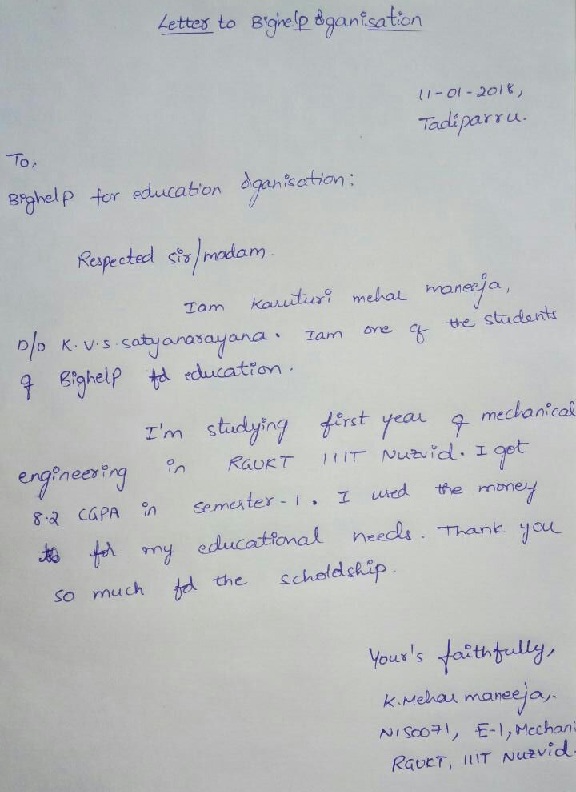 Letter to Bighelp organisation
11-01-2018,
Tadiparru.
To,
Bighelp for education organisation:
Respected sir/madam.
Iam Karuturi mehar maneeja,
D/o K.V.S. satyanarayana. Iam one of the students
of Bighelp for education.
I'm studying first year of mechanical
engineering in RGUKT IIIT Nuzvid. I get
8.2 CGPA in semester-1. I used the money
for my educational needs. Thank you
so much for the scholorship.
Your's faithfully,
K.Mehar maneeja,.
N150071, E-1, Mechani
RGUKT, IIIT Nuzvid.